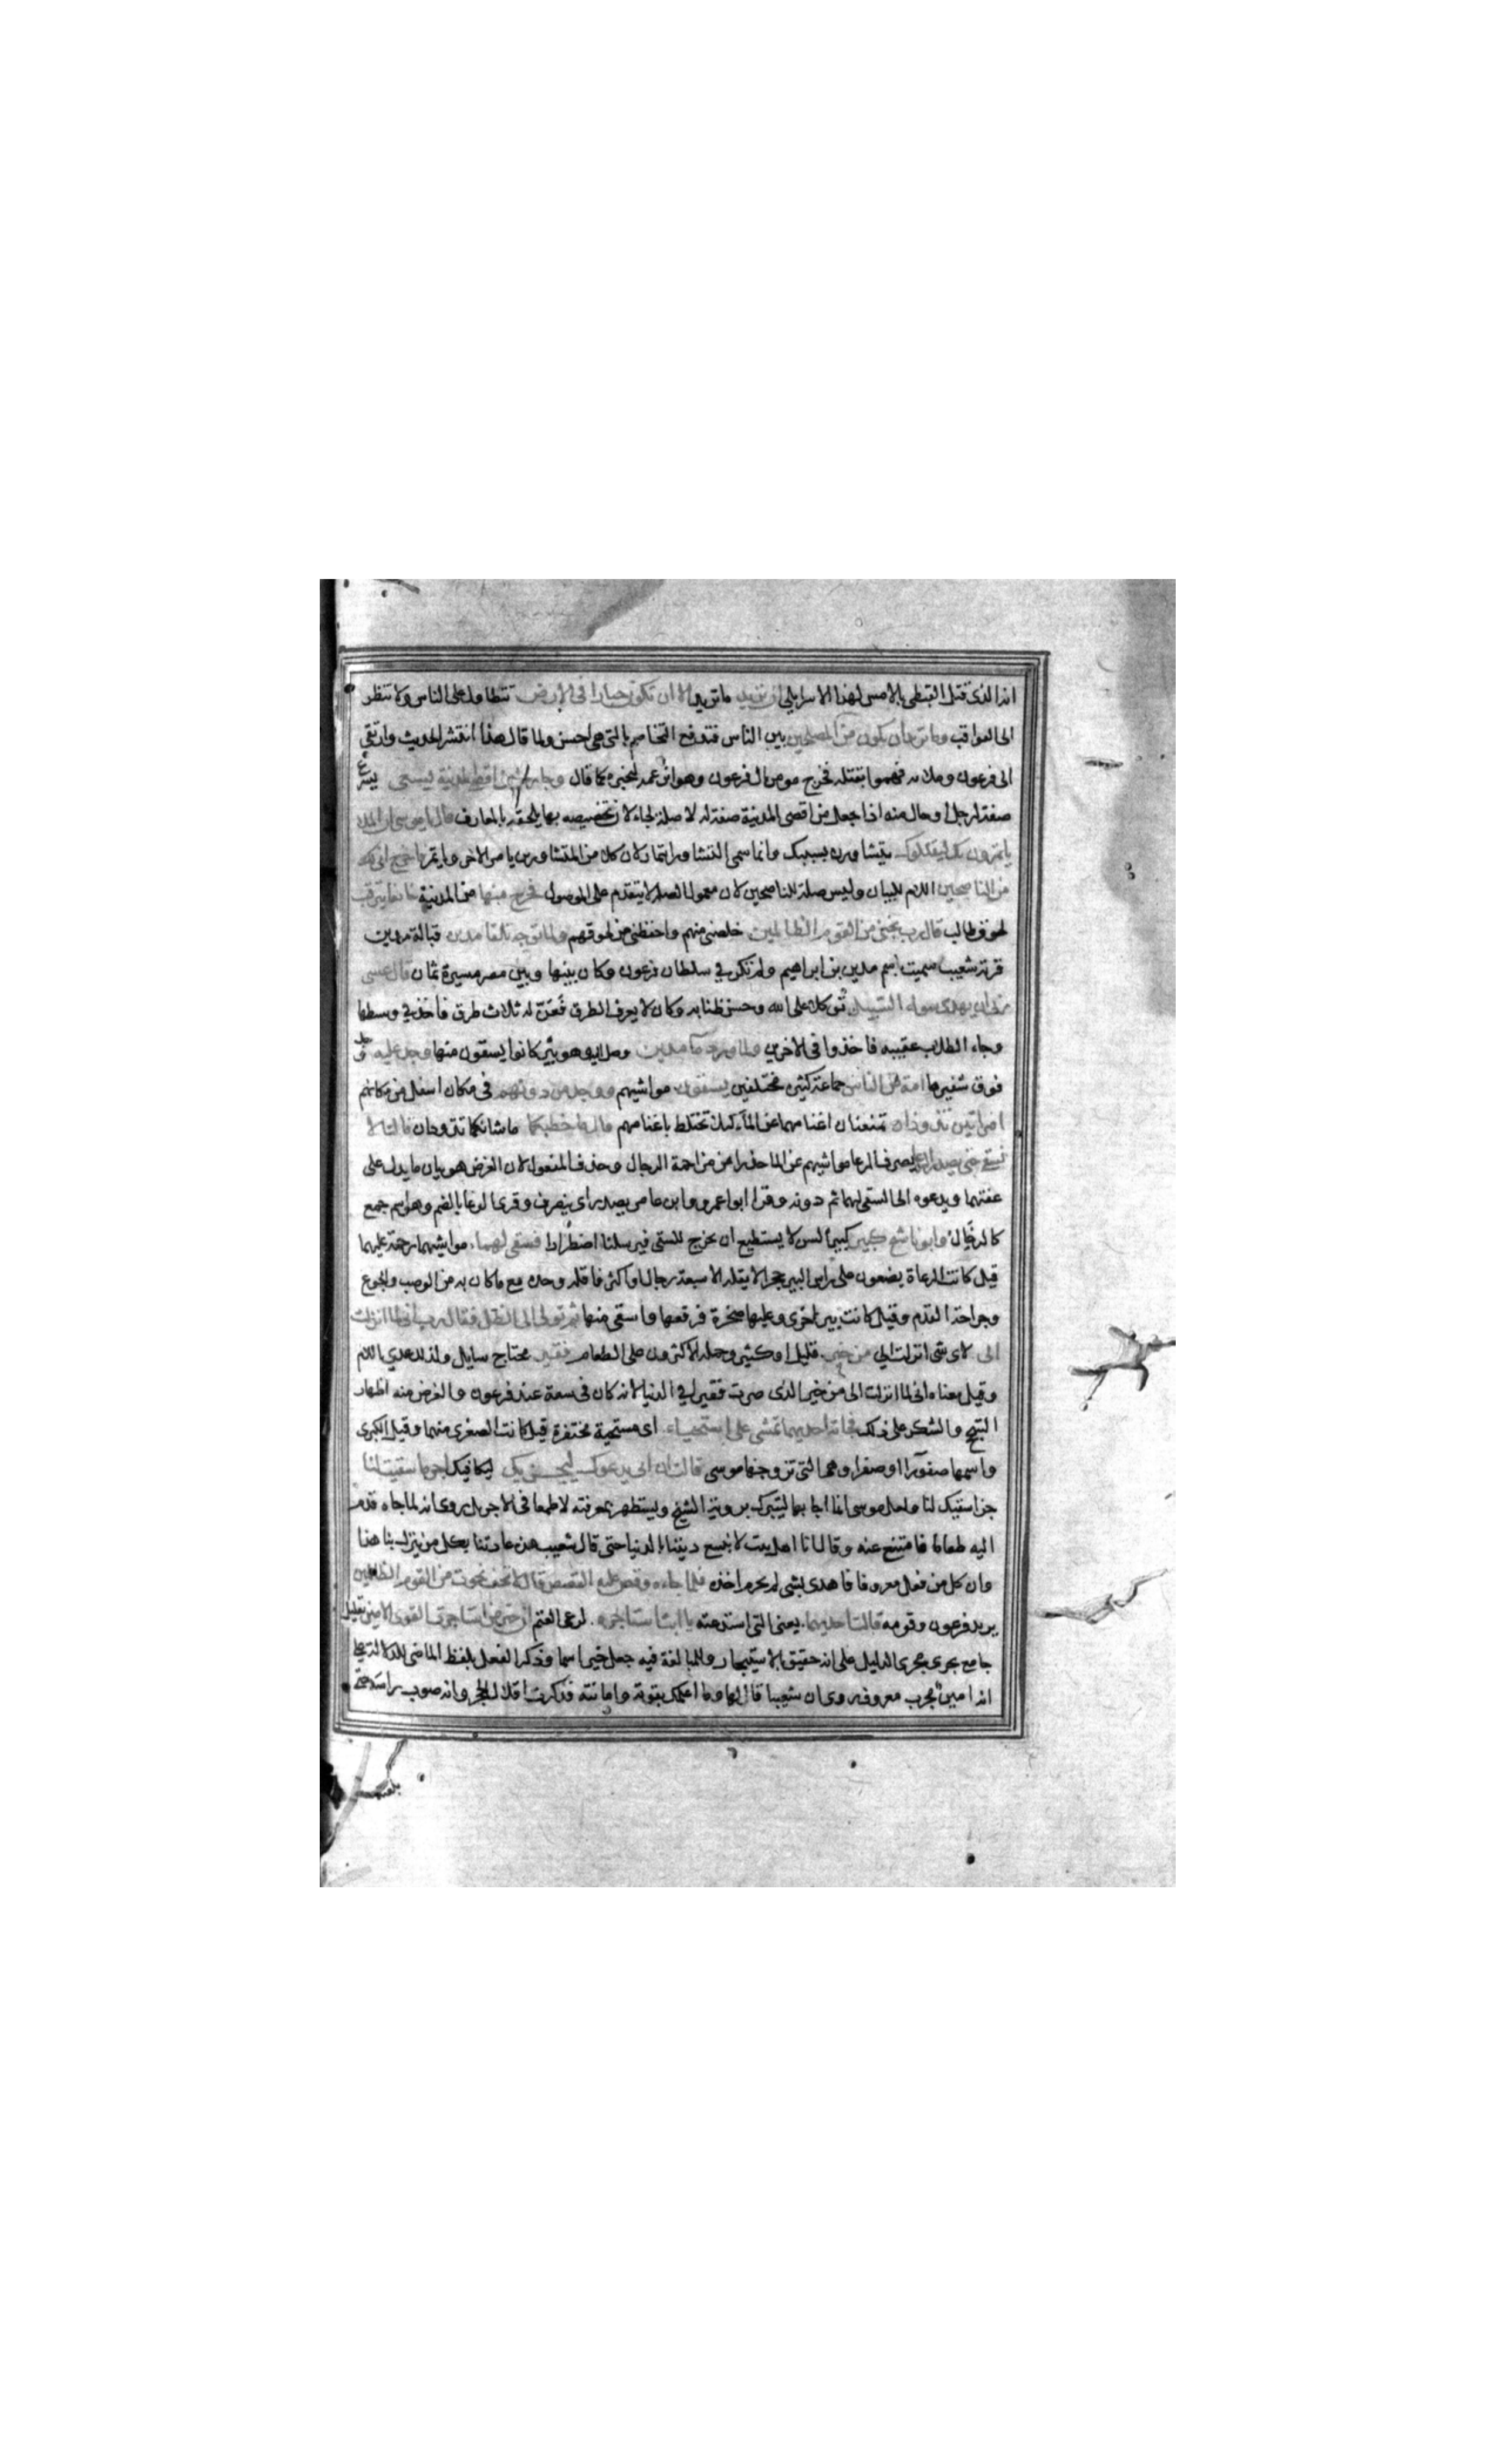 انه الذى قتل القبطى بالامس لهذا الاسرايلى ان تريد ما تريد الا ان تكون جبارا فى الارض تتطاول على الناس ولا تنظر
الى العواقب وما تريد ان تكون من المصلحين بين الناس فتدفع التخاصم بالتى هى احسن ولما قال هذا انتشر الحديث وارتقى
الى فرعون وملائه فهموا بقتله فخرج مومن ال فرعون وهو ابن عمه ليخبره كما قال وجاء رجل من اقصى المدينة يسعى يسرع
صفة لرجل او حال منه اذا جعل من اقصى المدينة صفة له لا صلة لجاء لان تخصيصه بها يلحقه بالمعارف قال يا موسى ان الملا
ياتمرون بك ليقتلوك يتشاورون بسببك وانما سمى التشاور ايتمارا لان كلا من المتشاورين يامر الاخر وياتمر فاخرج انى لك
من الناصحين اللام للبيان وليس صلة للناصحين لان معمول الصلة لا يتقدم على الموصول فخرج منها من المدينة خايفا يترقب
لحوق طالب قال رب نجنى من القوم الظالمين خلصنى منهم واحفظنى من لحوقهم ولما توجه تلقا مدين قبالة مدين
قرية شعيب سميت باسم مدين بن ابراهيم ولم تكن فى سلطان فرعون وكان بينها وبين مصر مسيرة ثمان قال عسى
ربى ان يهدينى سواء السبيل توكلا على الله وحسن ظنا به وكان لا يعرف الطرق فعن له ثلاث طرق فاخذ فى وسطها
وجاء الطلاب عقيبه فاخذوا فى الاخرين ولما ورد ماء مدين وصل اليه وهو بئر كانوا يسقون منها وجد عليه وجد
فوق شفيرها امة من الناس جماعة كثيرة مختلفين يسقون مواشيهم ووجد من دونهم فى مكان اسفل من مكانهم
امراتين تذودان تمنعان اغنامهما عن الماء كيلا تختلط باغنامهم قال ما خطبكما ما شانكما تذودان قالتا لا
نسقى حتى يصدر الرعاء يصرف الرعا مواشيهم عن الما حذرا من مزاحمة الرجال وحذف المفعول لان الغرض هو بيان ما يدل على
عفتهما ويدعوه الى السقى لهما ثم دونه وقرا ابو عمرو وابن عامر يصدر اى ينصرف وقرى الرعا بالضم وهو اسم جمع
كالرخال وابونا شيخ كبير كبير السن لا يستطيع ان يخرج للسقى فيرسلنا اضطرارا فسقى لهما مواشيهما رحمة عليهما
قيل كانت الرعاة يضعون على راس البير حجرا لا يقله الا سبعة رجال او اكثر فاقله وحده مع ما كان به من الوصب والجوع
وجراحة القدم وقيل كانت بير اخرى وعليها صخرة فرفعها واستقى منها ثم تولى الى الظل فقال رب انى لما انزلت
الى لاى شى انزلت الى من خير قليل او كثير وحمله الاكثرون على الطعام فقير محتاج سايل ولذلك عدى باللام
وقيل معناه انى لما انزلت الى من خير الدى صرت فقيرا فى الدنيا لانه كان فى سعة عند فرعون والغرض منه اظهار
التبجح والشكر على ذلك فجاءته احديهما تمشى على استحياء اى مستحية متخفرة قيل كانت الصغرى منهما وقيل الكبرى
واسمها صفورا او صفرا وهى التى تزوجها موسى قالت ان ابى يدعوك ليجزيك ليكافيك اجر ما سقيت لنا
جزا سقيك لنا ولعل موسى انما اجابها ليتبرك بروية الشيخ ويستظهر بمعرفته لا طمعا فى الاجر بل روى انه لما جاه قدم
اليه طعاما فامتنع عنه وقال انا اهل بيت لا نبيع ديننا بالدنيا حتى قال شعيب هذه عادتنا بكل من ينزل بنا هذا
وان كل من فعل معروفا فاهدى بشى لم يحرم اخذه فلما جاءه وقص عليه القصص قال لا تخف نجوت من القوم الظالمين
يريد فرعون وقومه قالت احديهما يعنى التى استدعته يا ابت استاجره لرعى الغنم ان خير من استاجرت القوى الامين تعليل
جامع يجرى مجرى الدليل على انه حقيق بالاستيجار وللمبالغة فيه جعل خير اسما وذكر الفعل بلفظ الماضى للدلالة على
انه امين مجرب معروف روى ان شعيبا قال لها وما اعلمك بقوته وامانته فذكرت اقلال الحجر وانه صوب راسه حتى
بلغته